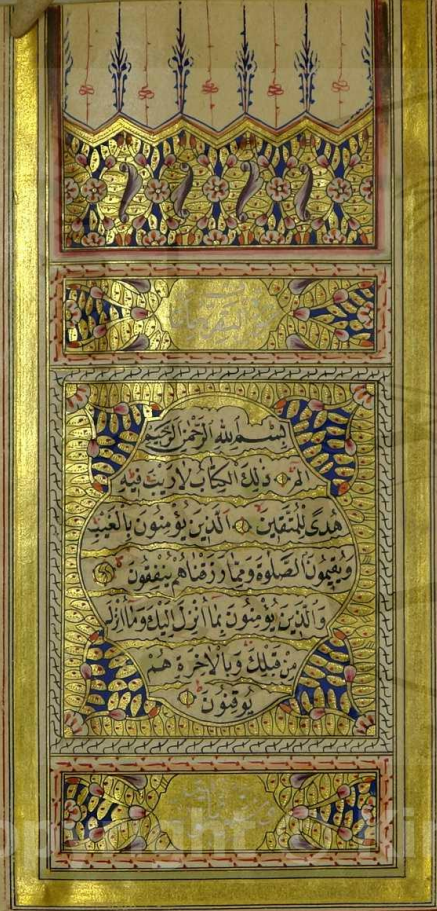 بِسْمِ اللهِ الرَّحْمٰنِ الرَّحِيمِ
الم ذٰلِكَ الْكِتَابُ لَا رَيْبَ فِيهِ
هُدًى لِلْمُتَّقِينَ الَّذِينَ يُؤْمِنُونَ بِالْغَيْبِ
وَيُقِيمُونَ الصَّلٰوةَ وَمِمَّا رَزَقْنَاهُمْ يُنْفِقُونَ
وَالَّذِينَ يُؤْمِنُونَ بِمَا أُنْزِلَ إِلَيْكَ وَمَا أُنْزِلَ
مِنْ قَبْلِكَ وَبِالْاٰخِرَةِ هُمْ
يُوقِنُونَ